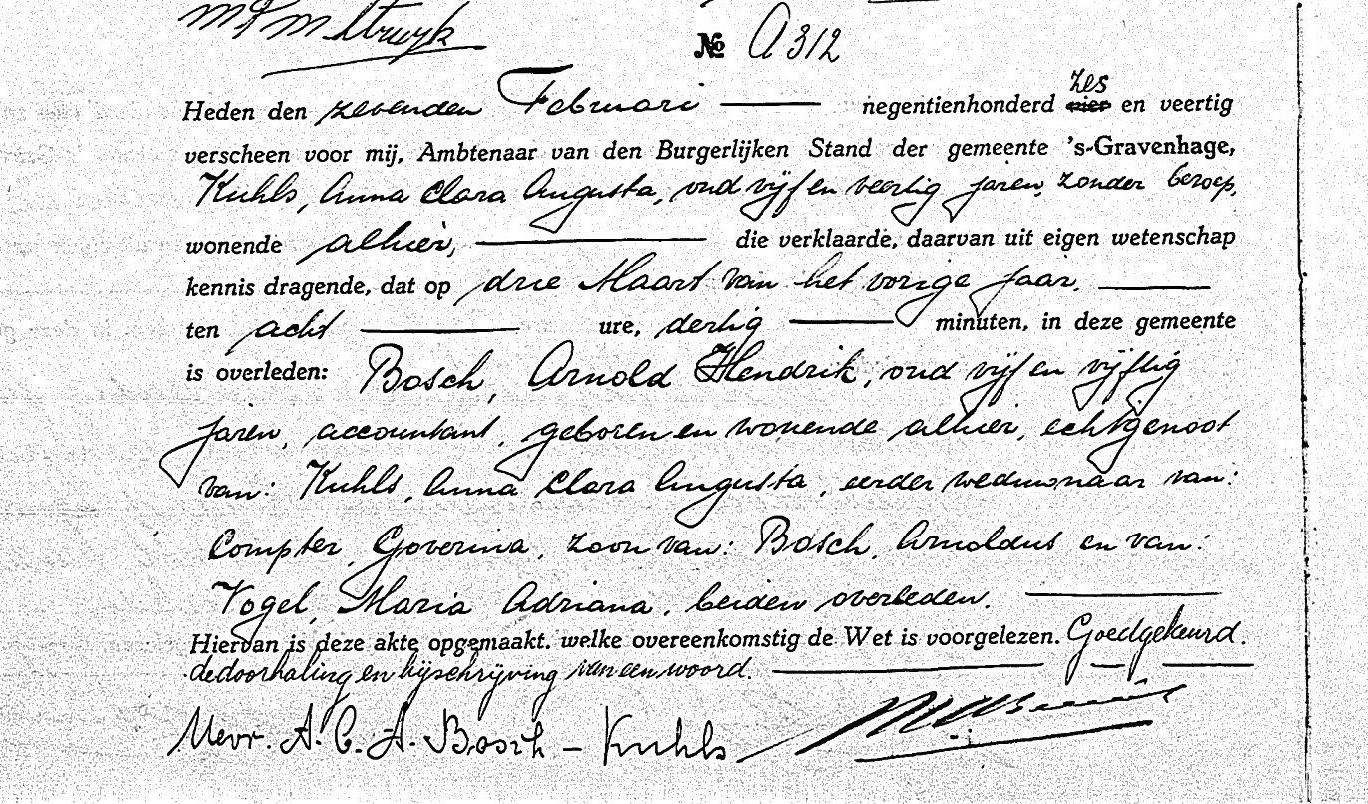 № A312
Heden den zevenden Februari negentienhonderd zes en veertig
verscheen voor mij, Ambtenaar van den Burgerlijken Stand der gemeente 's-Gravenhage,
Kuhls, Anna Clara Augusta, oud vijf en veertig jaren, zonder beroep,
wonende alhier, die verklaarde, daarvan uit eigen wetenschap
kennis dragende, dat op drie Maart van het vorige jaar,
ten acht ure, dertig minuten, in deze gemeente
is overleden: Bosch, Arnold Hendrik, oud vijf en vijftig
jaren, accountant, geboren en wonende alhier, echtgenoot
van: Kuhls, Anna Clara Augusta, eerder weduwnaar van:
Compter, Goverina, zoon van: Bosch, Arnoldus en van:
Vogel, Maria Adriana, beiden overleden.
Hiervan is deze akte opgemaakt, welke overeenkomstig de Wet is voorgelezen. Goedgekeurd
de doorhaling en bijschrijving van een woord.
Mevr. A. C. A. Bosch - Kuhls